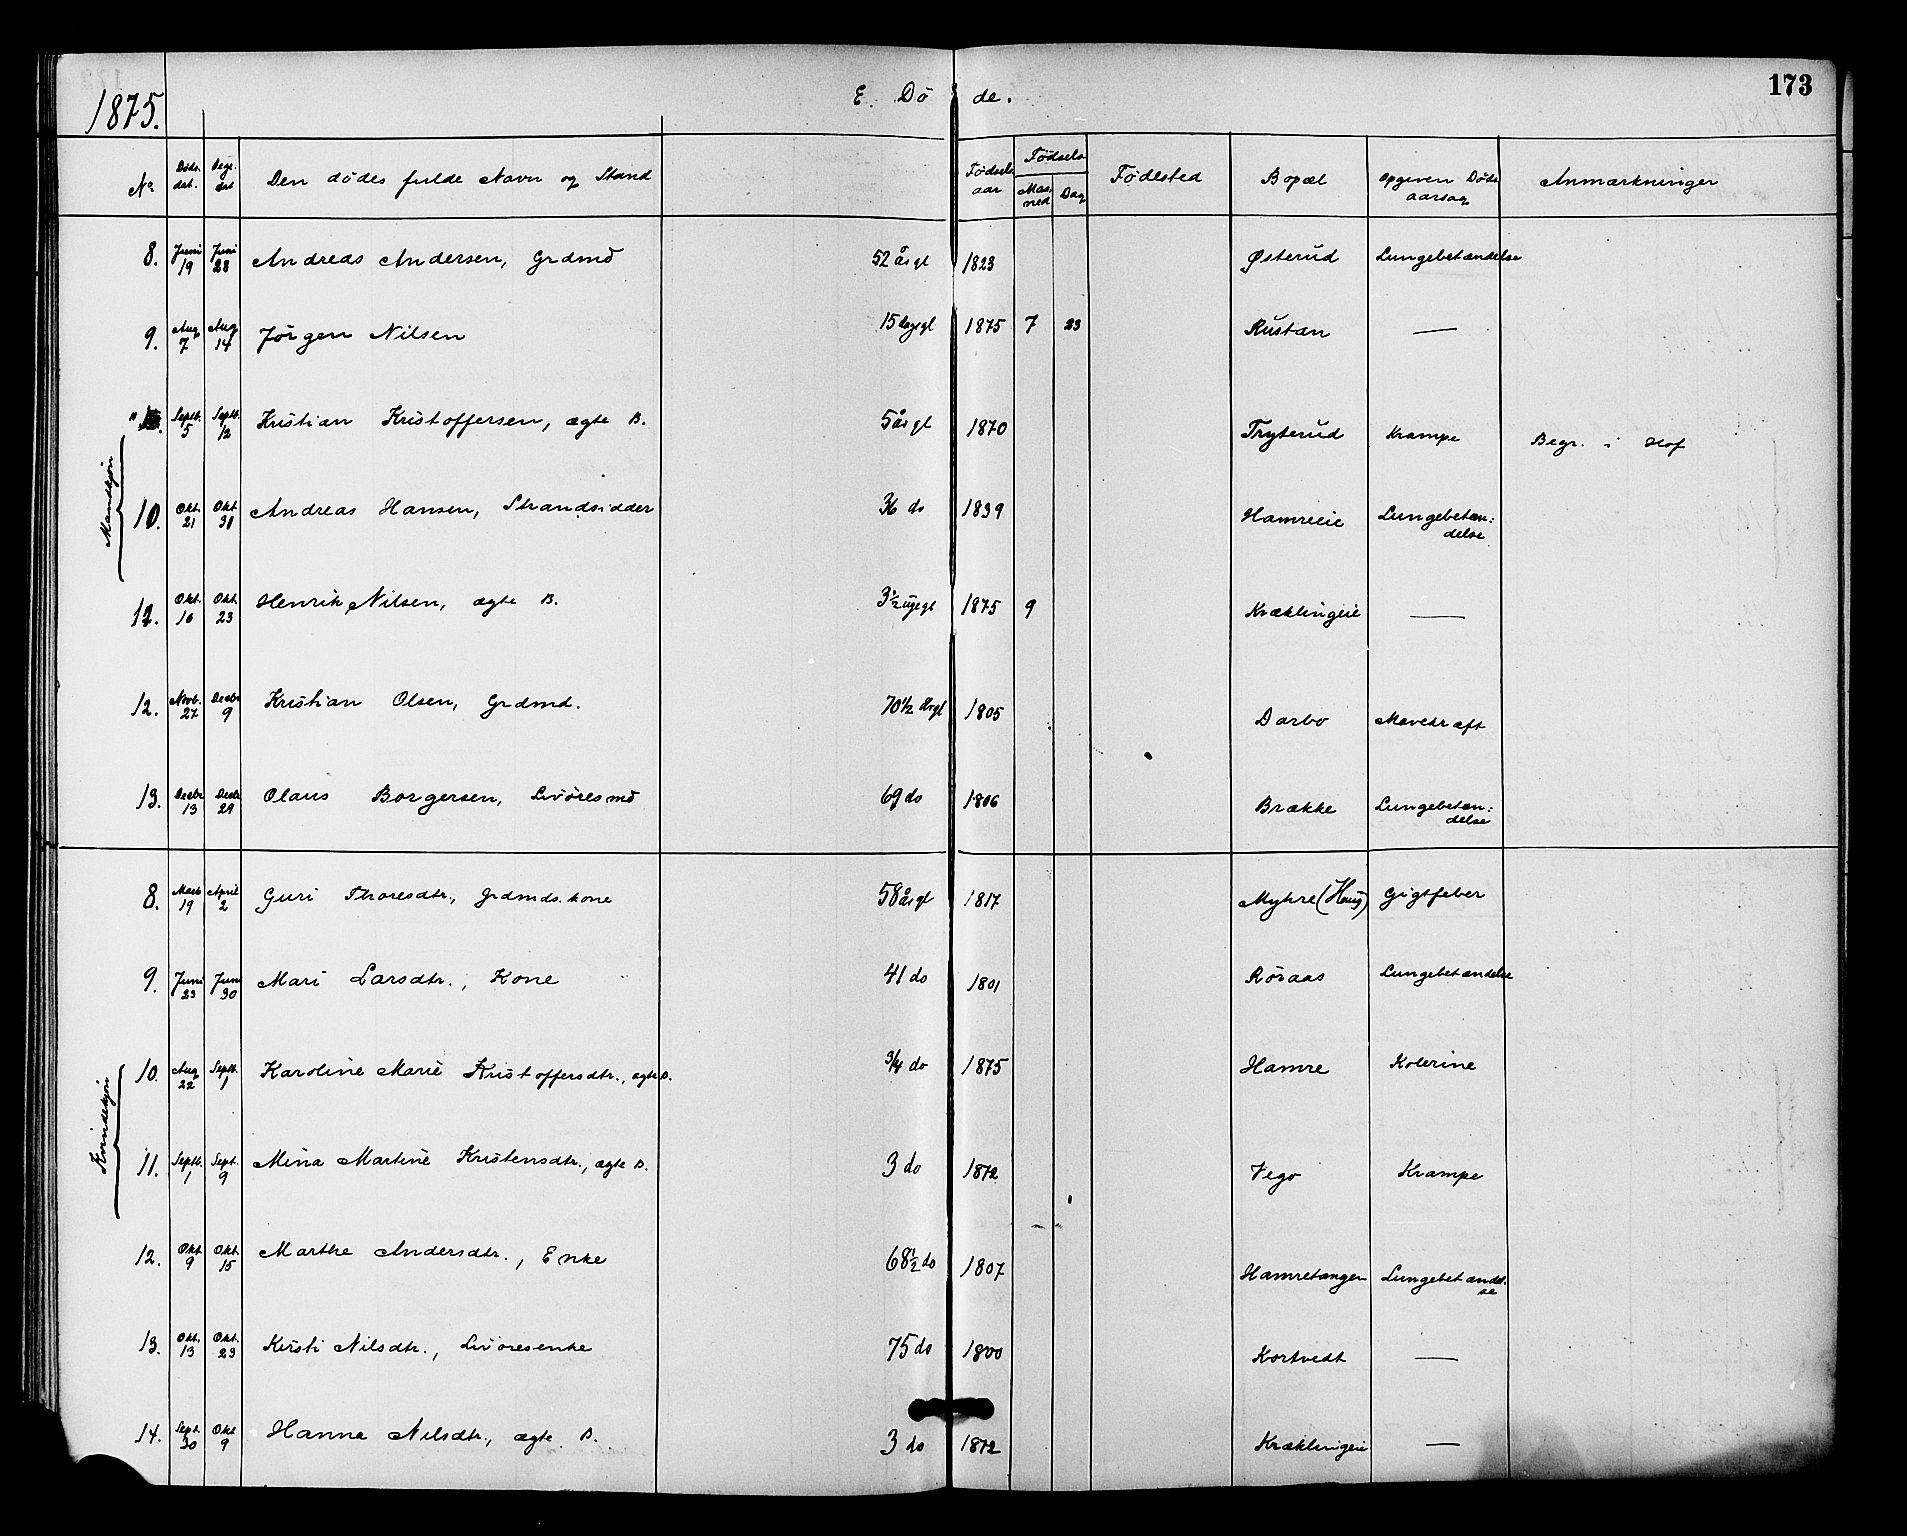 173
1875. E. Døde.
No Døds dat. Begr. dat Den dødes fulde Navn og Stand Fødsels aar Fødsels Maaned Dag Fødested Bopæl Opgiven Døds aarsag Anmærkninger
Mandkjøn
8. Juni 19 Juni 28 Andreas Andersen, Grdmd 52 årgl 1823 Østerud Lungebetændelse
9. Aug 7 Aug 14 Jørgen Nilsen 15 dagegl 1875 7 23 Rustan —
Septb. 5 Septb. 12 Kristian Kristoffersen, ægte B. 5 årgl 1870 Tryterud Krampe Begr. i Hof
10. Okt. 21 Okt 31 Andreas Hansen, Strandsidder 36 do 1839 Hamreeie Lungebetæn:
delse
12. Okt. 16 Okt. 23 Henrik Nilsen, ægte B. 3 1/2 ugegl 1875 9 Kræklingeie —
12. Novb. 27 Decbr 9 Kristian Olsen, Grdmd. 70 1/2 årgl 1805 Darbo Mavekræft
13. Decbr 13 Decbr 29 Olaus Borgersen, Livøresmd 69 do 1806 Brække Lungebetæn:
delse
Kvindekjøn
8. Marts 19 April 2 Guri Thoresdtr., Grdmds.kone 58 årgl 1817 Myhre (Haug) Gigtfeber
9. Juni 23 Juni 30 Mari Larsdtr., Kone 41 do 1801 Røraas Lungebetændelse
10. Aug 22 Septb. 1 Karoline Marie Kristoffersdtr., ægte B. 3/4 do 1875 Hamre Kolerine
11. Septb. 1 Sept. 9 Mina Martine Kristensdtr., ægte B. 3 do 1872 Vego Krampe
12. Okt 9 Okt. 15 Marthe Andersdtr., Enke 68 1/2 do 1807 Hamretangen Lungebetændel-
se
13. Okt. 13 Okt. 23 Kirsti Nilsdtr., Livøresenke 75 do 1800 Kortvedt —
14. Sept. 30 Okt 9 Hanna Nilsdtr., ægte B. 3 do 1872 Kræklingeie —